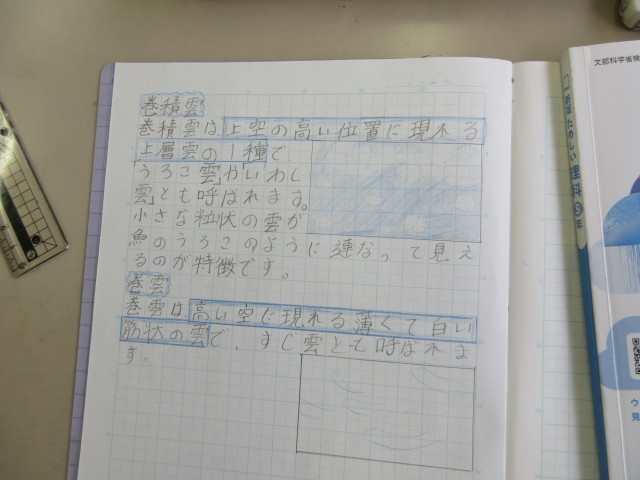 巻積雲
巻積雲は、上空の高い位置に現れる
上層雲の1種で
うろこ雲やいわし
雲とも呼ばれます。
小さな粒状の雲が
魚のうろこのように連なって見え
るのが特徴です。
巻雲
巻雲は、高い空に現れる薄くて白い
筋状の雲で、すじ雲とも呼ばれま
す。
文部科学省検
たのしい理科5年
ウ
見